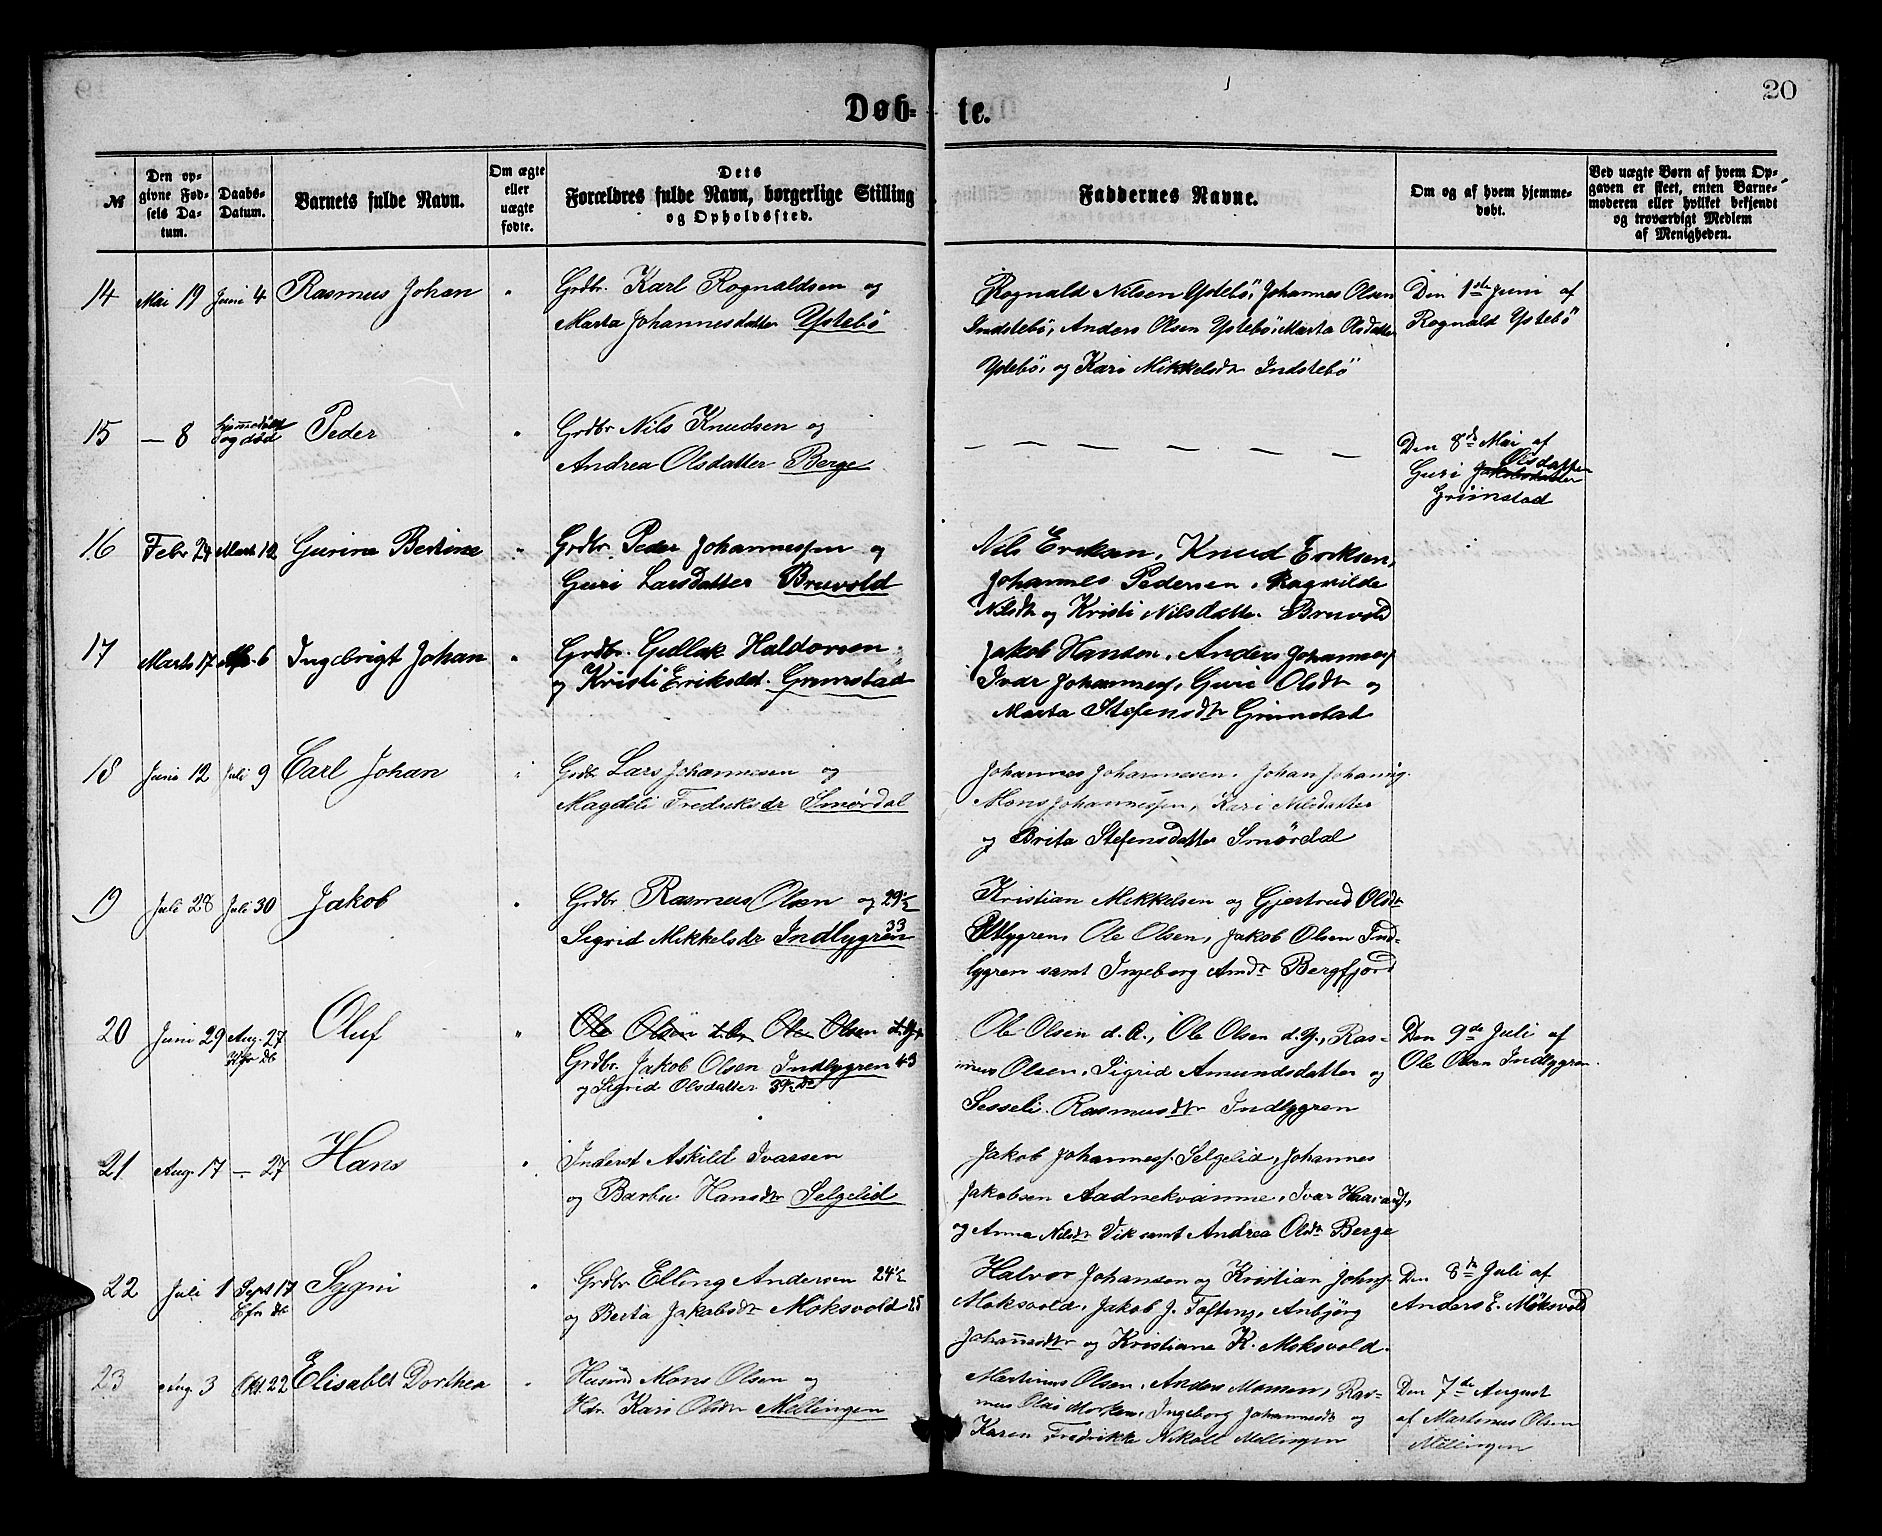 20
Døb-te.
№
Den op-
givne Fød-
sels Da-
tum.
Daabs-
Datum.
Barnets fulde Navn.
Om ægte
eller
uægte
fødte.
Dets
Forældres fulde Navn, borgerlige Stilling
og Opholdssted.
Faddernes Navne.
Om og af hvem hjemme-
døbt.
Ved uægte Børn af hvem Op-
gaven er skeet, enten Barne-
moderen eller hvilket bekjendt
og troværdigt Medlem
af Menigheden.
14 Mai 19 Juni 4 Rasmus Johan "
Grdbr. Karl Rognaldsen og
Marta Johannesdatter Ystebö
Rognald Nilsen Ystebö, Johannes Olsen
Indstebö, Anders Olsen Ystebö, Marta Olsdatter
Ystebö, og Kari Mikkelsdtr Indstebö
Den 1ste Juni af
Rognald Ystebö
15 — 8 Hjemmedöbt
og död Peder "
Grdbr Nils Knudsen og
Andrea Olsdatter Berge
— — — — — — —
Den 8de Mai af
Olsdatter
Guri Jakobsdatter
Grimstad
16 Febr 24 Marts 12 Gurine Bertine "
Grdbr. Peder Johannessen og
Guri Larsdatter Bruvold
Nils Eriksen, Knud Eriksen,
Johannes Pedersen, Ragnilde
Nilsdtr og Kristi Nilsdatter Bruvold
17 Marts 17 Apr. 6 Ingebrigt Johan "
Grdbr. Gullak Haldorsen
og Kristi Eriksdat. Grimstad
Jakob Hansen, Anders Johannes.
Ivar Johannes., Guri Olsdtr og
Marta Stefensdtr Grimstad
18 Juni 12 Juli 9 Carl Johan "
Grdbr Lars Johannesen og
Magdeli Fredriksdr Smørdal
Johannes Johannesen, Johan Johannes.
Mons Johannessen, Kari Nilsdatter
og Brita Stefensdatter Smördal
19 Juli 28 Juli 30 Jakob "
Grdbr Rasmus Olsen og 29½
Sigrid Mikkelsdr Indlygren 33
Kristian Mikkelsen og Gjertrud Olsdtr
Utlygren, Ole Olsen, Jakob Olsen Ind-
lygren samt Ingeborg Amdtr Bergfjord
20 Juni 29 Aug. 27 Oluf "
Ole Olsen d. A, Ole Olsen d. y.
Grdbr. Jakob Olsen Indlygren 43
og Sigrid Olsdatter
Ole Olsen d. A., Ole Olsen d. y., Ras-
mus Olsen, Sigrid Amundsdatter og
Sesseli Rasmusdtr Indlygren
Den 9de Juli af
Ole Olsen Indlygren
21 Aug. 17 — 27 Hans "
Inderst Askild Ivarsen
og Barbu Hansdtr Selgelid
Jakob Johannes. Selgelid, Johannes
Jakobsen Aadnekvamme, Ivar Haavards.,
og Anna Nilsdtr Vik samt Andrea Olsdtr Berge
22 Juli 1 Sept 17 Sygni "
Grdbr Elling Andersen 24½
og Berta Jakobsdtr Moksvold 25
Halvor Johansen og Kristian Johns.
Moksvold, Jakob J. Tofting, Anbjörg
Johannesdtr og Kristiane K. Moksvold.
Den 8de Juli af
Anders E. Moksvold
23 Aug. 3 Okt. 22 Elisabet Dorthea "
Husmd Mons Olsen og
Hdr. Kari Olsdtr Mellingen
Martinus Olsen, Anders Monsen, Ras-
mus Olai Morken, Ingeborg Johannesdtr og
Karen Fredrikke Nikoll Mellingen
Den 7de August
af Martinus Olsen
Mellingen